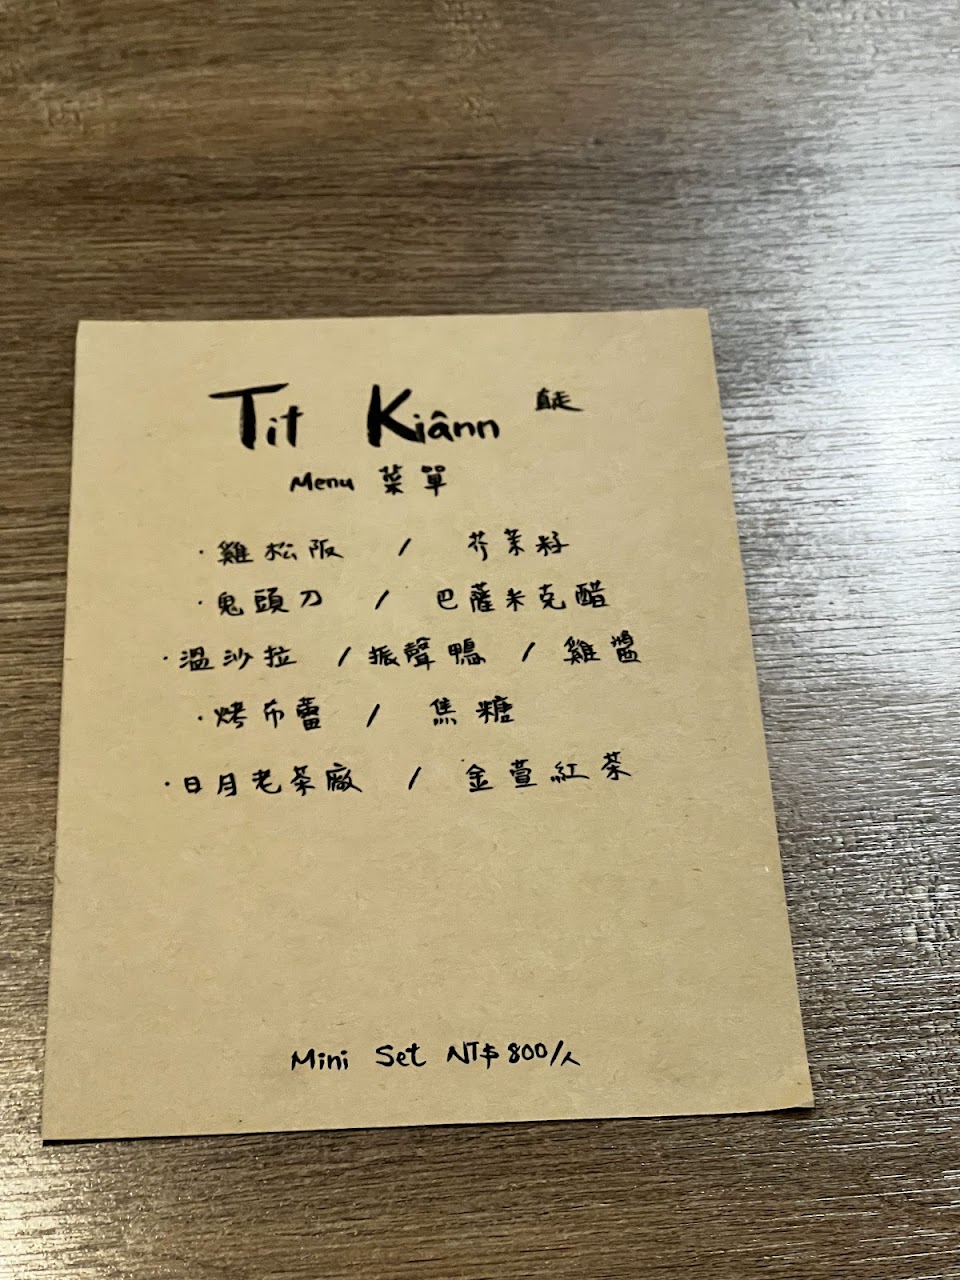 Tit Kiânn 直走
Menu 菜單
·雞松阪 / 芥茉籽
·鬼頭刀 / 巴薩米克醋
·溫沙拉 / 振聲鴨 / 雞醬
·烤布蕾 / 焦糖
·日月老茶廠 / 金萱紅茶
Mini Set NT$800/人